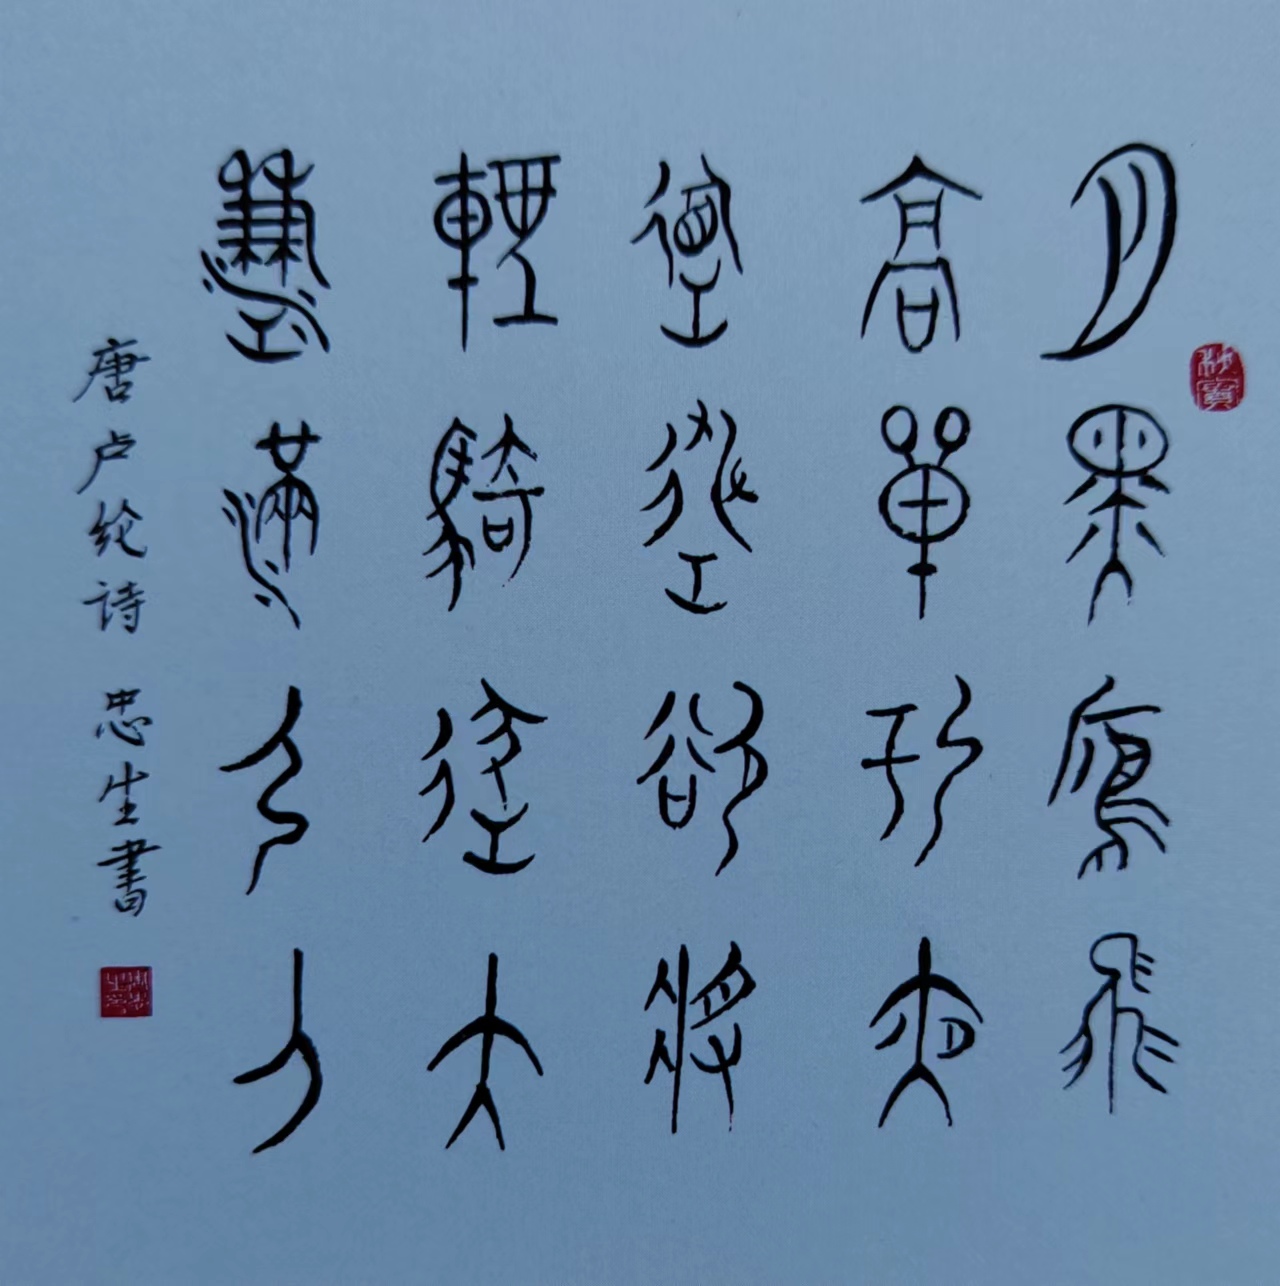 月黑鴈飛
高單于夜
遁逃欲將
輕騎逐大
雪滿弓刀
唐卢纶诗 忠生書